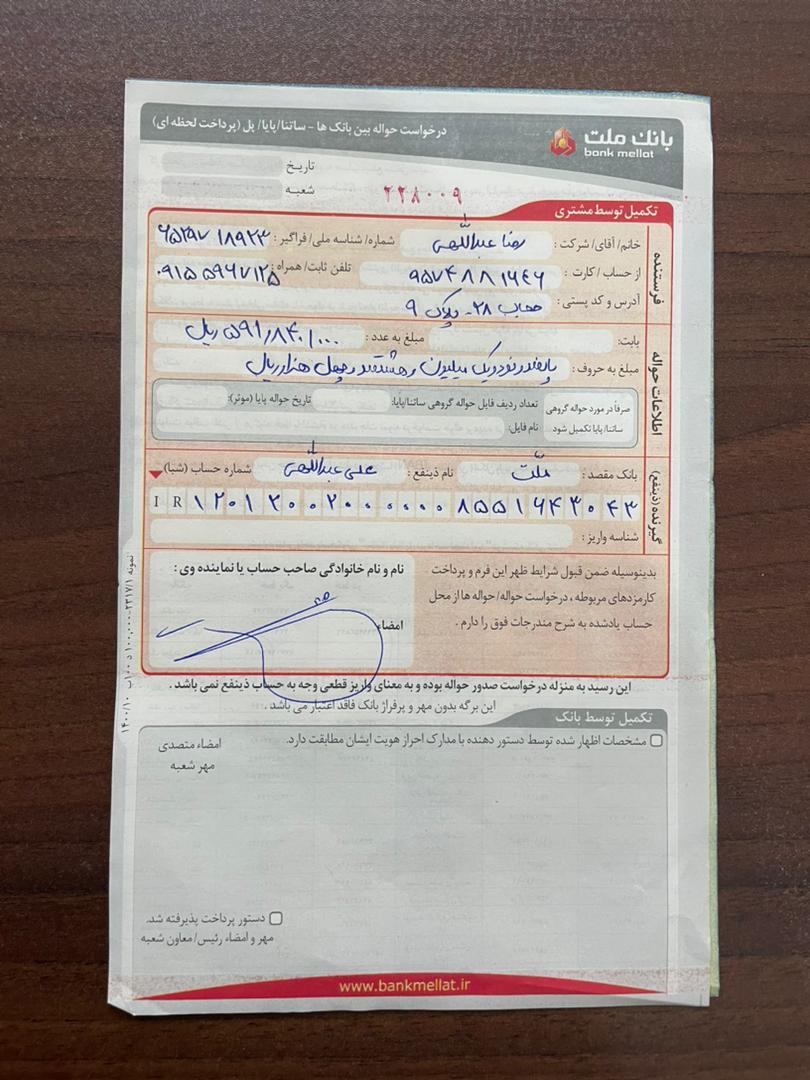 بانک ملت
bank mellat
درخواست حواله بین بانک ها - ساتنا/پایا/ پل (پرداخت لحظه ای)
تاریخ
شعبه
۲۲۸۰۰۹
تکمیل توسط مشتری
فرستنده
خانم/آقای/شرکت: رضا عبداللهی شماره/شناسه ملی/فراگیر: ۶۵۲۹۷۱۸۹۲۳
از حساب/کارت: ۹۵۷۴۸۸۱۶۴۶ تلفن ثابت/همراه: ۰۹۱۵۵۹۶۷۱۲۵
آدرس و کد پستی: ۲۸- پلاک ۹
اطلاعات حواله
بابت: مبلغ به عدد: ۵۹۱/۸۴۰/۰۰۰ ریال
مبلغ به حروف: پانصد و نود و یک میلیون و هشتصد و چهل هزار ریال
صرفاً در مورد حواله گروهی ساتنا/پایا تکمیل شود
تعداد ردیف فایل حواله گروهی ساتنا/پایا: تاریخ حواله پایا (موثر):
نام فایل:
گیرنده (ذینفع)
بانک مقصد: ملت نام ذینفع: علی عبداللهی شماره حساب (شبا)
IR ۱۲۰۱۲۰۰۲۰۰۰۰۰۰۸۵۵۱۶۴۳۰۴۳
شناسه واریز:
بدینوسیله ضمن قبول شرایط ظهر این فرم و پرداخت
کارمزدهای مربوطه، درخواست حواله/حواله ها از محل
حساب یادشده به شرح مندرجات فوق را دارم.
نام و نام خانوادگی صاحب حساب یا نماینده وی:
امضاء
این رسید به منزله درخواست صدور حواله بوده و به معنای واریز قطعی وجه به حساب ذینفع نمی باشد.
این برگه بدون مهر و پرفراژ بانک فاقد اعتبار می باشد.
تکمیل توسط بانک
مشخصات اظهار شده توسط دستور دهنده با مدارک احراز هویت ایشان مطابقت دارد.
امضاء متصدی
مهر شعبه
دستور پرداخت پذیرفته شد.
مهر و امضاء رئیس/معاون شعبه
www.bankmellat.ir